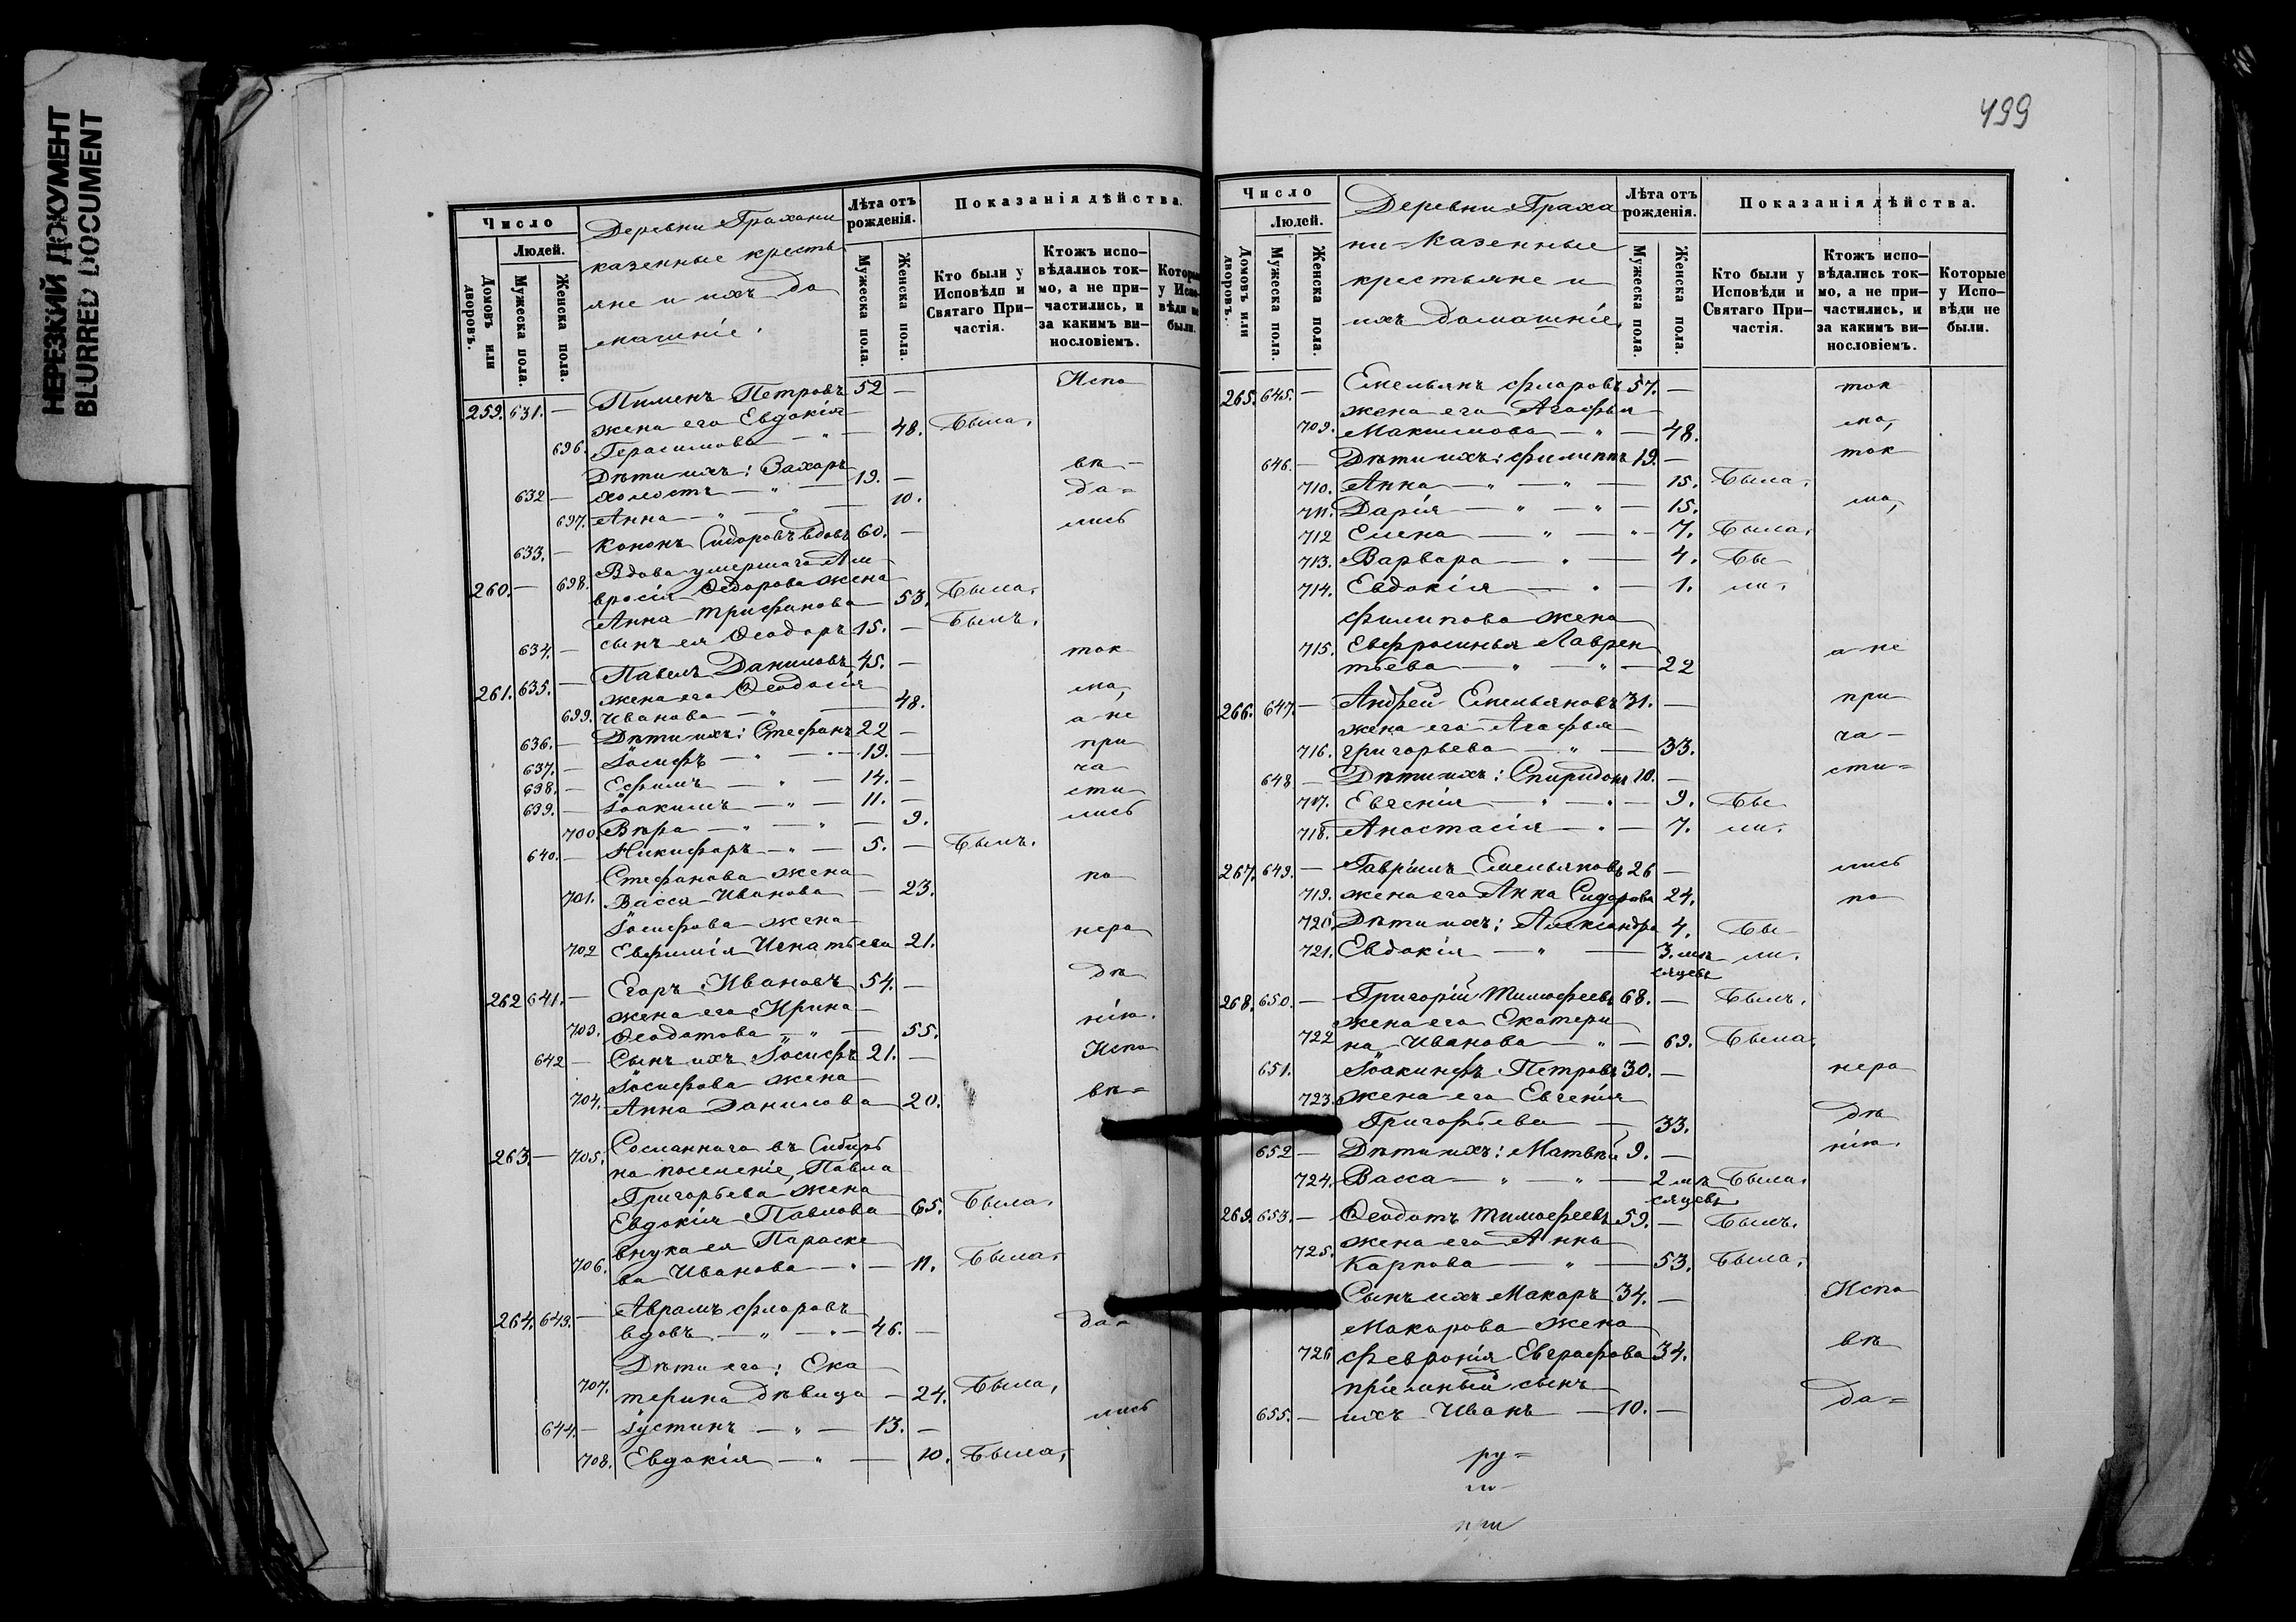 НЕРЕЗКИЙ ДОКУМЕНТ
BLURRED DOCUMENT
Число
Людей.
Домовъ или дворовъ.
Мужеска пола.
Женска пола.
Деревни Грахани
казенные кресть
яне и ихъ до
машніе.
Лѣта отъ рожденія.
Мужеска пола.
Женска пола.
Показанія дѣйства.
Кто были у Исповѣди и Святаго Причастія.
Ктожъ исповѣдались токмо, а не причастились, и за какимъ винословіемъ.
Которые у Исповѣди не были.
259. 631. — Пименъ Петровъ 52 — Испо
жена его Евдокія
696. Герасимова — " — 48. Была.
Дѣти ихъ: Захаръ
632 — холостъ — " — 19. — вѣ-
697. Анна — " — " — 10. да=
633. — Кононъ Сидоровъ вдовъ 60. — лись
Вдова умершаго Ам
260. — 698. вросія Ѳедорова жена
Анна Трифонова 53. Была.
634. — сынъ ея Ѳеодоръ 15. — Былъ.
261. 635. — Павелъ Даниловъ 45. — ток
жена его Ѳеодосія
699. Иванова — " — 48. мо,
636. — Дѣти ихъ: Стефанъ 22 — а не
637. — Іосифъ — " — 19. — при
638. — Ефимъ — " — 14. — ча
639. — Іоакимъ — " — 11. — сти
700. Вѣра — " — " — 9. лись
640. — Никифоръ — " — 5. — Былъ.
Стефанова жена
701. Васса Иванова — 23. по
Іосифова жена
702 Евфимія Игнатьева 21. нера
262 641. — Егоръ Ивановъ 54. — дѣ
жена его Ирина
703. Ѳеодотова — " — 55. нію.
642 — Сынъ ихъ Іосифъ 21. — Испо
Іосифова жена
704. Анна Данилова 20. вѣ=
263. — 705. Сосланнаго въ Сибирь
на поселеніе, Павла
Григорьева жена
Евдокія Павлова 65. Была.
внука ея Параске
706. ва Иванова — " — 11. Была.
264. 643. — Аврамъ Флоровъ
вдовъ — " — " — 46. — да=
Дѣти его: Ека
707. терина дѣвица — 24. Была,
644. — Іустинъ — " — 13. — лись
708. Евдокія — " — 10. Была,
499
Число
Людей.
Домовъ или дворовъ.
Мужеска пола.
Женска пола.
Деревни Граха
ни казенные
крестьяне и
ихъ домашніе,
Лѣта отъ рожденія.
Мужеска пола.
Женска пола.
Показанія дѣйства.
Кто были у Исповѣди и Святаго Причастія.
Ктожъ исповѣдались токмо, а не причастились, и за какимъ винословіемъ.
Которые у Исповѣди не были.
265. 645. — Емельянъ Флоровъ 57. — ток
жена его Агафья
709. Максимова — " — 48. мо,
646. — Дѣти ихъ: Филиппъ 19. — ток
710. Анна — " — " — 15. Была.
711. Дарія — " — " — 15. мо,
712 Елена — " — " 7. Была.
713. Варвара — " — 4. Бы
714. Евдокія — " — 1. ли.
Филипова жена
715. Евфросинья Лаврен
тьева — " — " — 22 а не
266. 647. — Андрей Емельяновъ 31. — при
жена его Агафья
716. Григорьева — " — 33. ча—
648 — Дѣти ихъ: Спиридонъ 10. — сти=
717. Евгенія — " — " — 9. Бы
718. Анастасія — " — 7. ли.
267. 649. — Гавріилъ Емельяновъ 26 — лись
719. жена его Анна Сидорова 24. по
720. Дѣти ихъ: Александра 4. Бы
721. Евдокія — " — 3. мѣ ли.
сяцевъ
268. 650. — Григорій Тимофеевъ 68. — Былъ.
жена его Екатери
722 на Иванова — " — 69. Была.
651. Іоакинфъ Петровъ 30. — нера
723. жена его Евгенія
Григорьева — 33. дѣ
652 — Дѣти ихъ: Матвѣй 9. — нію.
724. Васса — " — " — 2 мѣ Была.
сяцевъ
269. 653. — Ѳеодотъ Тимофеевъ 59. — Былъ.
жена его Анна
725. Карпова — " — 53. Была.
Сынъ ихъ Макаръ 34. — Испо
Макарова жена
726 Февронія Евграфова 34. вѣ
пріемный сынъ
655. — ихъ Иванъ — 10. — да=
ру=
ли
при